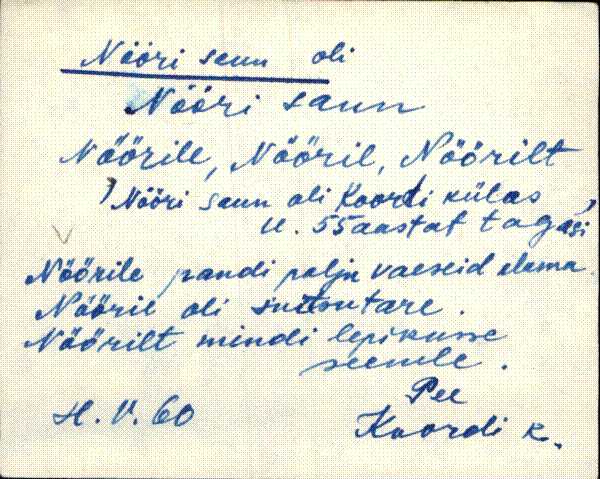 Nööri saun oli
Nööri saun
Nöörile, Nööril, Nöörilt
Nööri saun oli Koordi külas,
u. 55 aastat tagasi
Nöörile pandi palju vaeseid elama.
Nööril oli suitsutare.
Nöörilt mindi lepikusse
seenele.
Pee
H. V. 60
Koordi k.